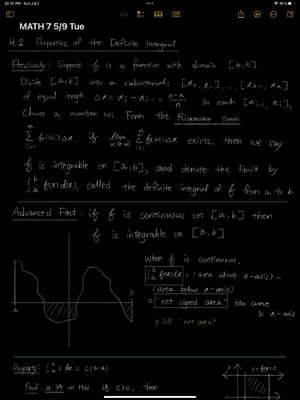 10:30 PM Sun Jul 2
MATH 7 5/9 Tue
4.2 Properties of the Definite Integral
Previously: Suppose f is a function with domain [a,b].
Divide [a,b] into n subintervals [x₀, x₁], ..., [xₙ₋₁, xₙ]
of equal length Δx = xᵢ - xᵢ₋₁ = (b-a)/n. In each [xᵢ₋₁, xᵢ],
Choose a number wᵢ. Form the Riemann sum
∑ᵢ₌₁ⁿ f(wᵢ)Δx. If lim n→∞ ∑ᵢ₌₁ⁿ f(wᵢ)Δx exists, then we say
f is integrable on [a,b], and denote the limit by
∫ₐᵇ f(x)dx, called the definite integral of f from a to b
Advanced Fact: if f is continuous on [a,b] then
f is integrable on [a,b]
When f is continuous,
∫ₐᵇ f(x)dx = (area above x-axis) -
(area below x-axis)
= "net signed area" btw curve
& x-axis
"net area"
a
b
Property: ∫ₐᵇ c dx = c(b-a)
Proof: # 79 on HW. if c>0, then
y
y = f(x) = c